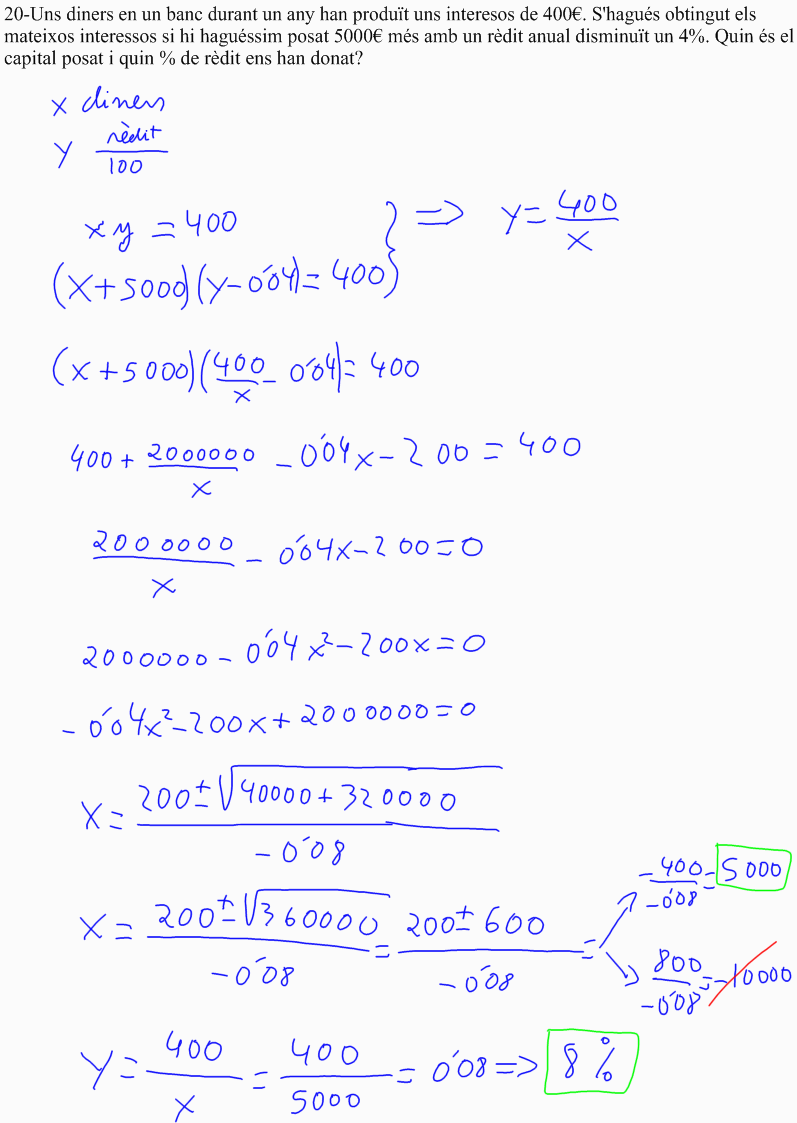 20-Uns diners en un banc durant un any han produït uns interesos de 400€. S'hagués obtingut els
mateixos interessos si hi haguéssim posat 5000€ més amb un rèdit anual disminuït un 4%. Quin és el
capital posat i quin % de rèdit ens han donat?
x diners
y rèdit/100
xy = 400 } => y = 400/x
(x+5000)(y-0'04) = 400
(x+5000)(400/x - 0'04) = 400
400 + 2000000/x - 0'04x - 200 = 400
2000000/x - 0'04x - 200 = 0
2000000 - 0'04x² - 200x = 0
-0'04x² - 200x + 2000000 = 0
x = (200 ± √(40000 + 320000))/(-0'08)
x = (200 ± √360000)/(-0'08) = (200 ± 600)/(-0'08) =
-400/-0'08 = 5000
800/-0'08 = -10000
y = 400/x = 400/5000 = 0'08 => 8%